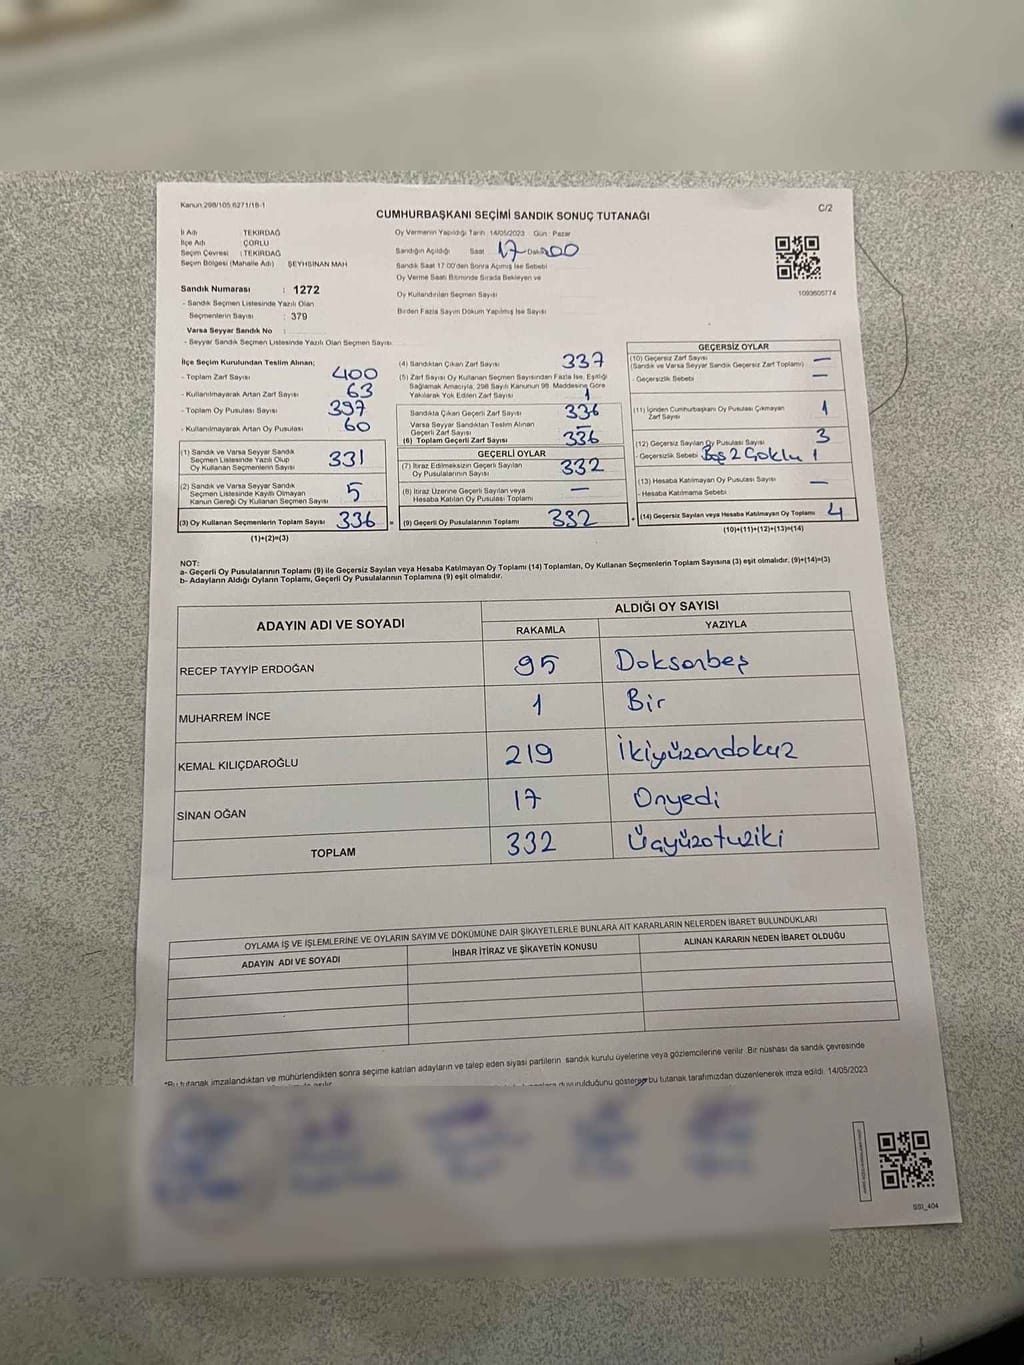 Kanun:298/105,6271/18-1
C/2
CUMHURBAŞKANI SEÇİMİ SANDIK SONUÇ TUTANAĞI
İl Adı : TEKİRDAĞ
İlçe Adı : ÇORLU
Seçim Çevresi : TEKİRDAĞ
Seçim Bölgesi (Mahalle Adı) : ŞEYHSİNAN MAH
Oy Vermenin Yapıldığı Tarih : 14/05/2023 Gün : Pazar
Sandığın Açıldığı Saat 17 Dakika 00
Sandık Saat 17.00'den Sonra Açılmış İse Sebebi
Oy Verme Saati Bitiminde Sırada Bekleyen ve
Oy Kullandırılan Seçmen Sayısı
Birden Fazla Sayım Döküm Yapılmış İse Sayısı
1093605774
Sandık Numarası : 1272
- Sandık Seçmen Listesinde Yazılı Olan
Seçmenlerin Sayısı : 379
Varsa Seyyar Sandık No :
- Seyyar Sandık Seçmen Listesinde Yazılı Olan Seçmen Sayısı
İlçe Seçim Kurulundan Teslim Alınan;
- Toplam Zarf Sayısı 400
- Kullanılmayarak Artan Zarf Sayısı 63
- Toplam Oy Pusulası Sayısı 397
- Kullanılmayarak Artan Oy Pusulası 60
(1) Sandık ve Varsa Seyyar Sandık
Seçmen Listesinde Yazılı Olup
Oy Kullanan Seçmenlerin Sayısı 331
(2) Sandık ve Varsa Seyyar Sandık
Seçmen Listesinde Kayıtlı Olmayan
Kanun Gereği Oy Kullanan Seçmen Sayısı 5
(3) Oy Kullanan Seçmenlerin Toplam Sayısı 336
(1)+(2)=(3)
(4) Sandıktan Çıkan Zarf Sayısı 337
(5) Zarf Sayısı Oy Kullanan Seçmen Sayısından Fazla İse, Eşitliği
Sağlamak Amacıyla, 298 Sayılı Kanunun 98. Maddesine Göre
Yakılarak Yok Edilen Zarf Sayısı 1
Sandıkta Çıkan Geçerli Zarf Sayısı 336
Varsa Seyyar Sandıktan Teslim Alınan
Geçerli Zarf Sayısı —
(6) Toplam Geçerli Zarf Sayısı 336
GEÇERLİ OYLAR
(7) İtiraz Edilmeksizin Geçerli Sayılan
Oy Pusulalarının Sayısı 332
(8) İtiraz Üzerine Geçerli Sayılan veya
Hesaba Katılan Oy Pusulası Toplamı —
= (9) Geçerli Oy Pusulalarının Toplamı 332
GEÇERSİZ OYLAR
(10) Geçersiz Zarf Sayısı
(Sandık ve Varsa Seyyar Sandık Geçersiz Zarf Toplamı) —
- Geçersizlik Sebebi —
(11) İçinden Cumhurbaşkanı Oy Pusulası Çıkmayan
Zarf Sayısı 1
(12) Geçersiz Sayılan Oy Pusulası Sayısı 3
- Geçersizlik Sebebi Boş 2 Çoklu 1
(13) Hesaba Katılmayan Oy Pusulası Sayısı —
- Hesaba Katılmama Sebebi
+ (14) Geçersiz Sayılan veya Hesaba Katılmayan Oy Toplamı 4
(10)+(11)+(12)+(13)=(14)
NOT:
a- Geçerli Oy Pusulalarının Toplamı (9) ile Geçersiz Sayılan veya Hesaba Katılmayan Oy Toplamı (14) Toplamları, Oy Kullanan Seçmenlerin Toplam Sayısına (3) eşit olmalıdır. (9)+(14)=(3)
b- Adayların Aldığı Oyların Toplamı, Geçerli Oy Pusulalarının Toplamına (9) eşit olmalıdır.
ADAYIN ADI VE SOYADI
ALDIĞI OY SAYISI
RAKAMLA YAZIYLA
RECEP TAYYİP ERDOĞAN 95 Doksanbeş
MUHARREM İNCE 1 Bir
KEMAL KILIÇDAROĞLU 219 İkiyüzondokuz
SİNAN OĞAN 17 Onyedi
TOPLAM 332 Üçyüzotuziki
OYLAMA İŞ VE İŞLEMLERİNE VE OYLARIN SAYIM VE DÖKÜMÜNE DAİR ŞİKAYETLERLE BUNLARA AİT KARARLARIN NELERDEN İBARET BULUNDUKLARI
ADAYIN ADI VE SOYADI İHBAR İTİRAZ VE ŞİKAYETİN KONUSU ALINAN KARARIN NEDEN İBARET OLDUĞU
*Bu tutanak imzalandıktan ve mühürlendikten sonra seçime katılan adayların ve talep eden siyasi partilerin sandık kurulu üyelerine veya gözlemcilerine verilir. Bir nüshası da sandık çevresinde
duyurulduğunu gösterir bu tutanak tarafımızdan düzenlenerek imza edildi. 14/05/2023
SSI_404